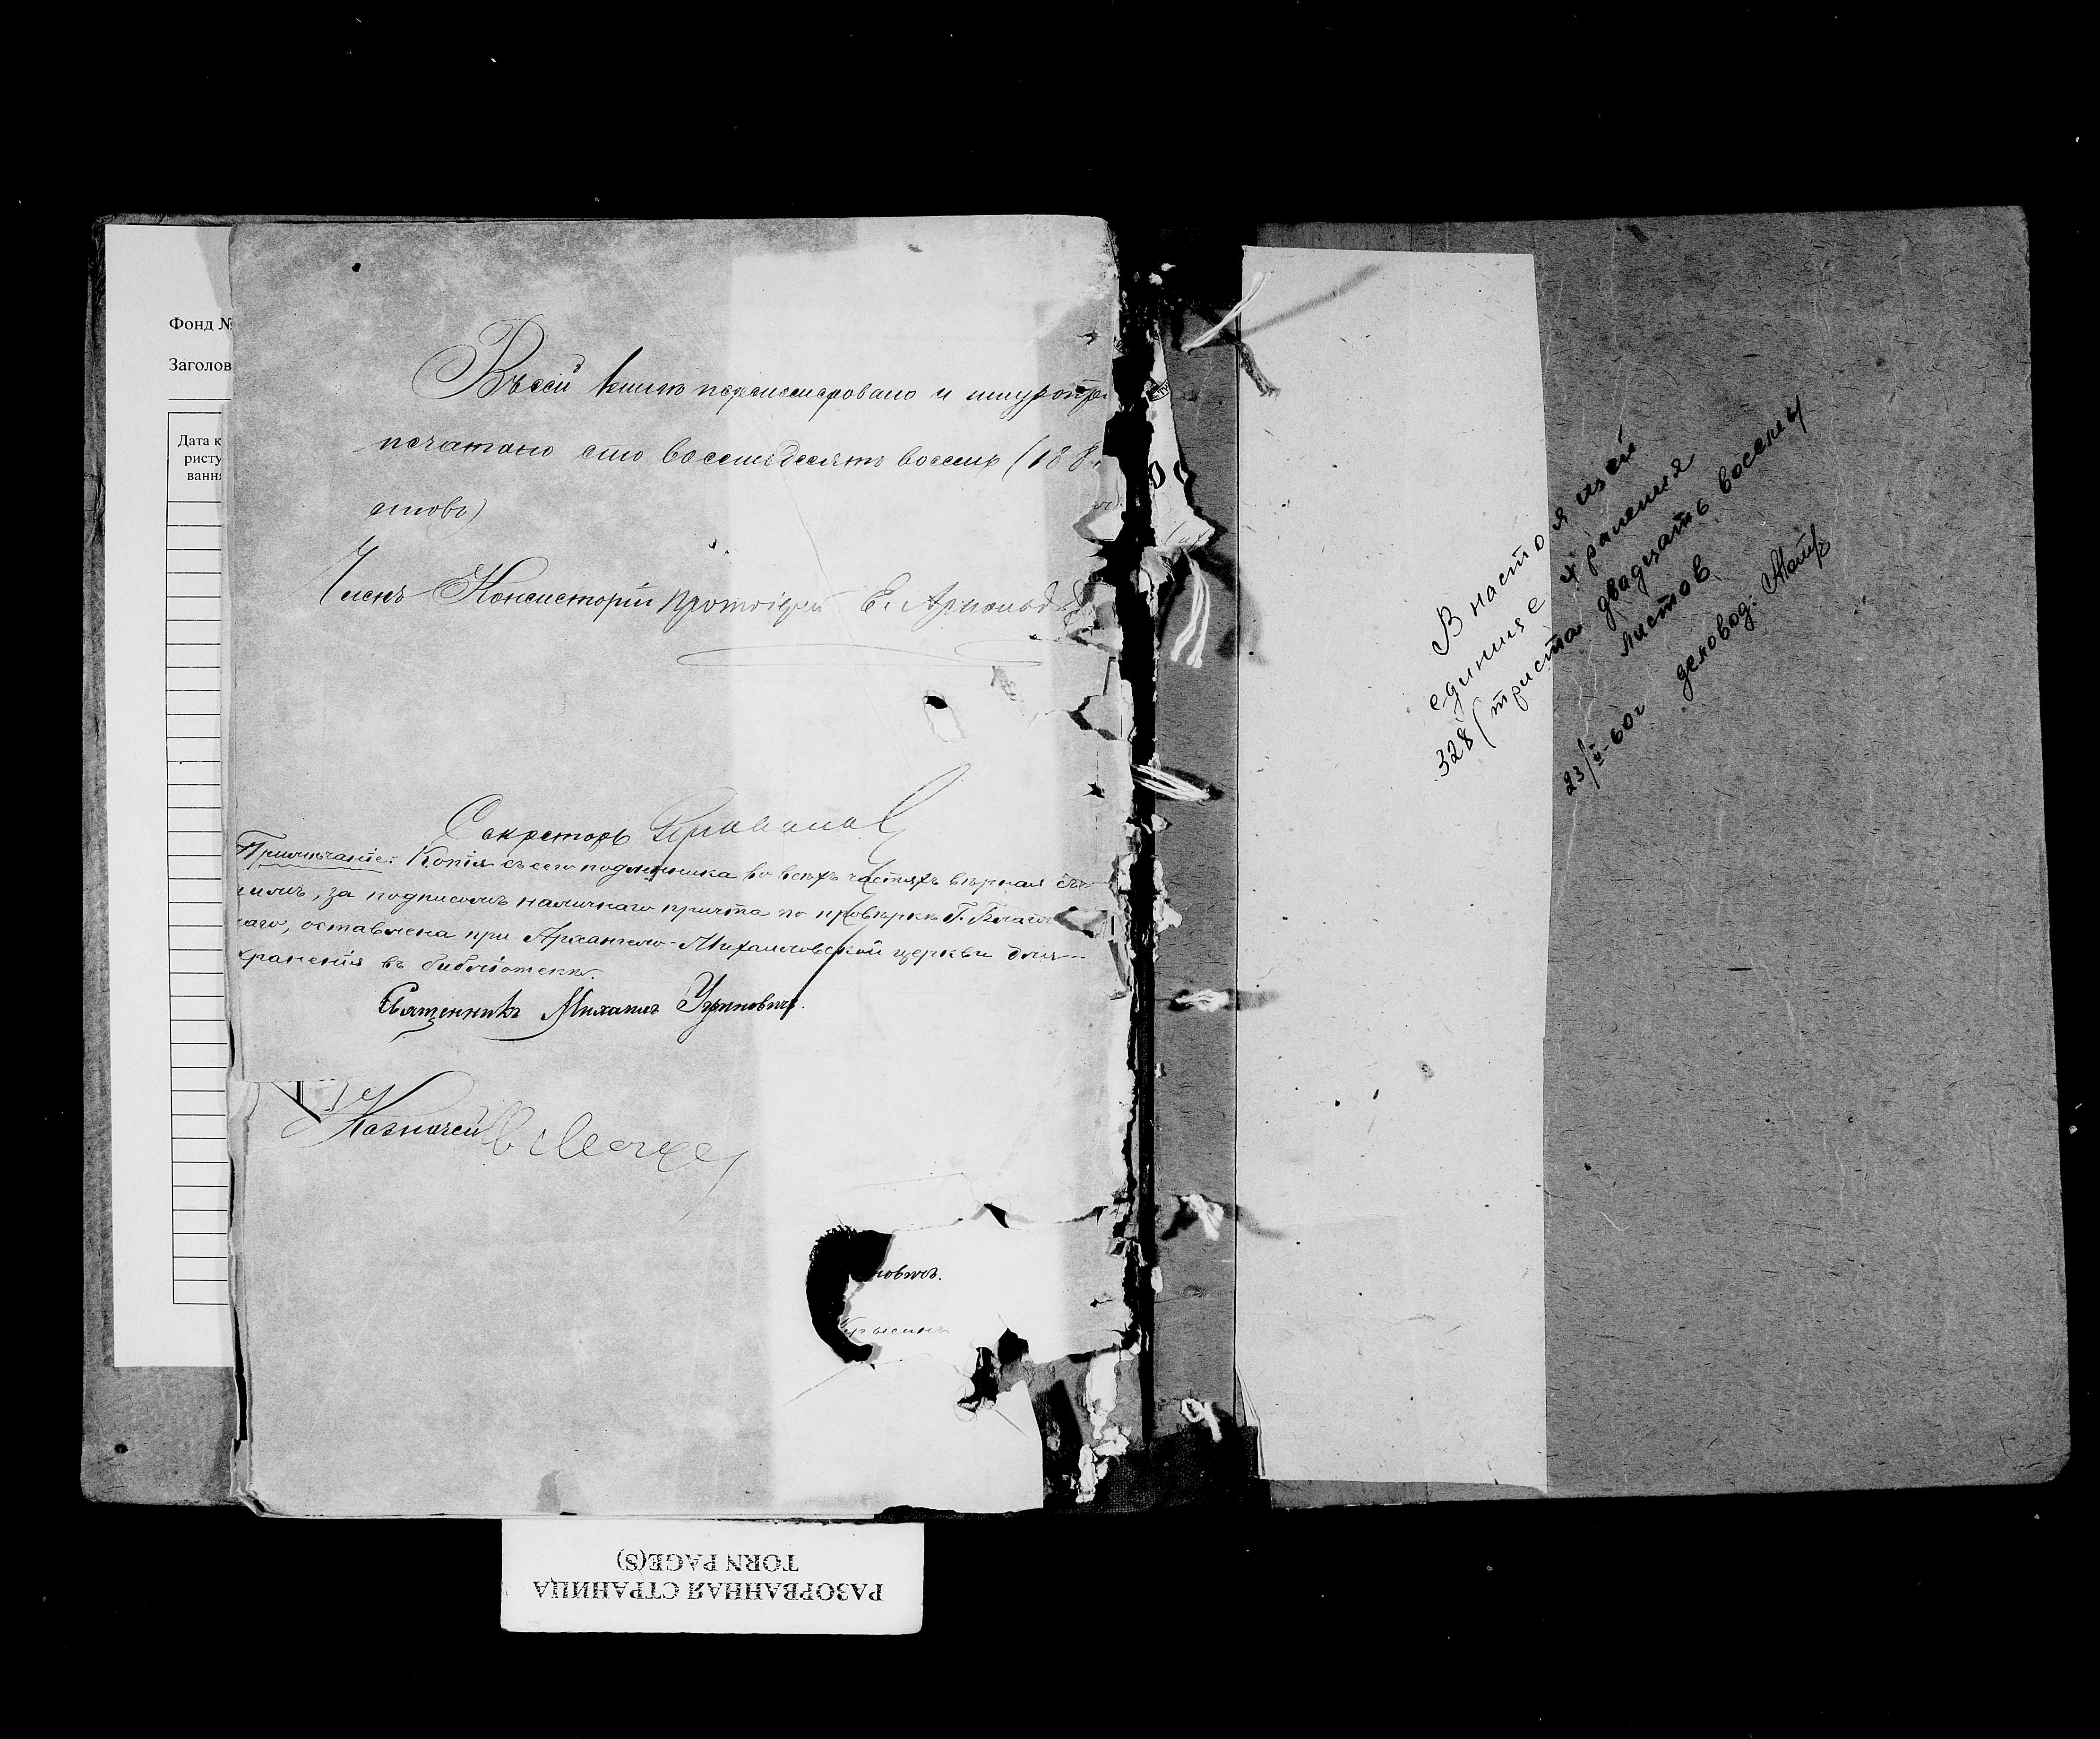 Фонд №
Заголов
Дата к
ристу
ванн
Въ сей книгѣ перенумеровано и шнуропри
печатано сто восемьдесятъ восемь (188
листовъ)
Членъ Консисторіи Протоіерей Е. Арнольд
Секретарь
Примѣчаніе: Копія съ сего подлинника во всѣхъ частяхъ вѣрная съ
нимъ, за подписомъ наличнаго причта по провѣркѣ Г. Благо
наго, оставлена при Архангело-Михайловской церкви для
храненія въ библіотекѣ.
Священникъ Михаилъ
Казначей
новичъ.
В настоящей
единице хранения
328 (триста двадцать восемь)
листов
23/V-60г деловод:
РАЗОРВАННАЯ СТРАНИЦА
TORN PAGE(S)